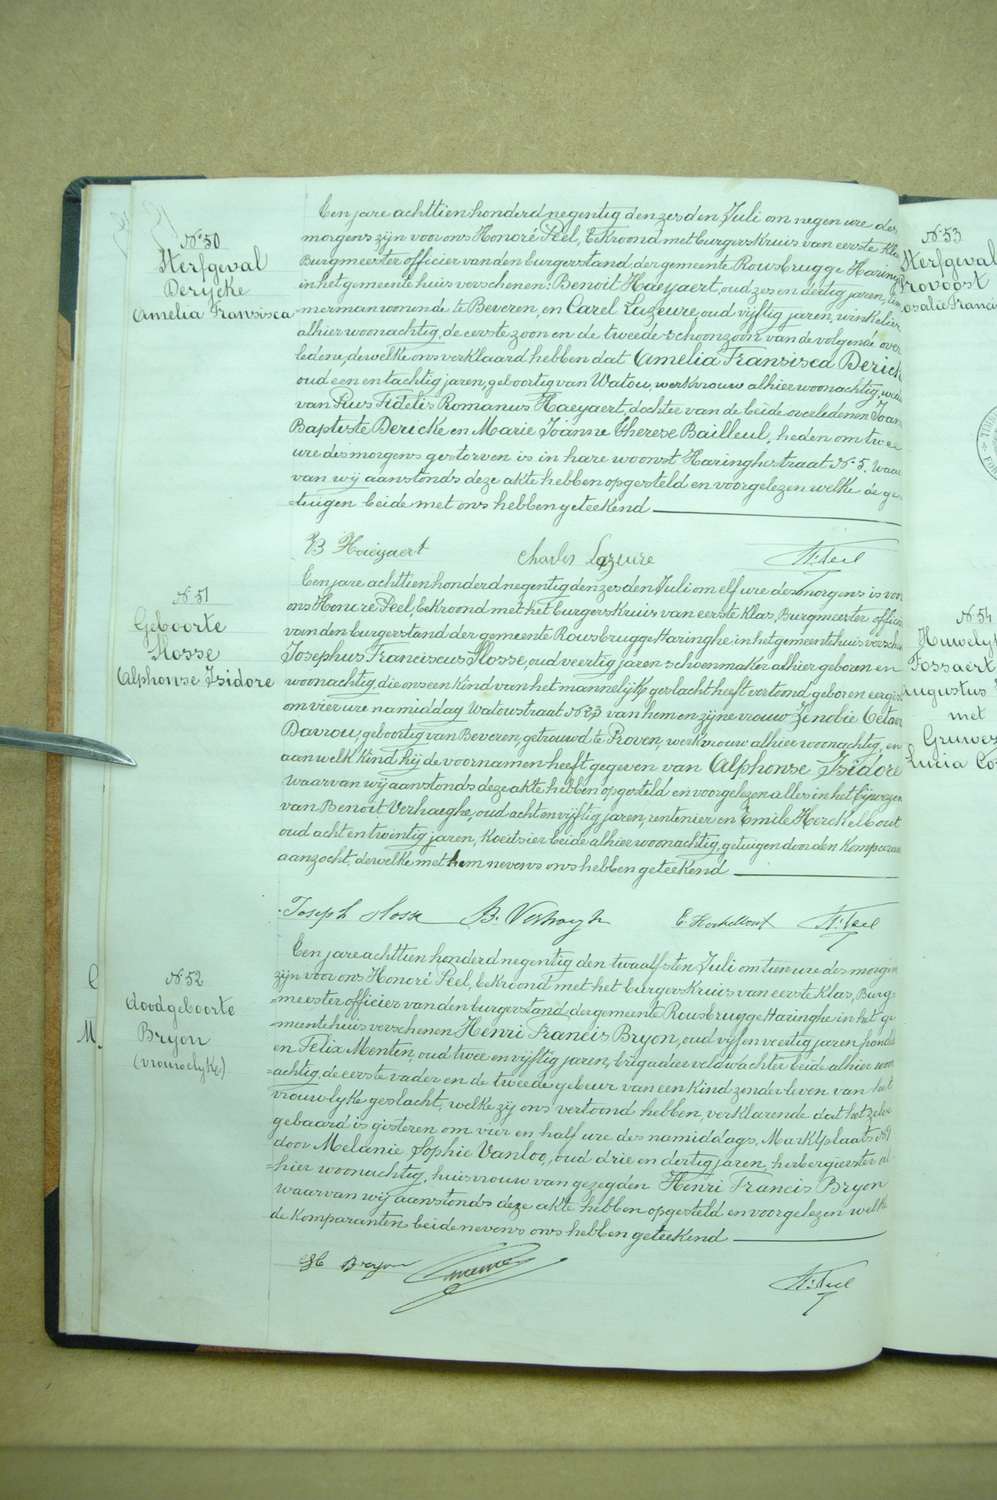 N° 50
Sterfgeval
Derycke
Amelia Fransisca
Een jare achttien honderd negentig den zesden Juli om negen ure des
morgens zijn voor ons Honoré Peel, bekroond met burgerskruis van eerste Klas
Burgmeester officier van den burgerstand der gemeente Rousbrugge Haringhe
in het gemeentehuis verschenen: Benoit Haeyaert, oud zes en dertig jaren, tim
=merman wonende te Beveren, en Carel Lazeure, oud vijftig jaren, winkelier
alhier woonachtig, de eerste zoon en de tweede schoonzoon van de volgende over
ledene, dewelke ons verklaard hebben dat Amelia Fransisca Derick
oud een en tachtig jaren, geboortig van Watou, werkvrouw alhier woonachtig,
van Pius Fidelis Romanus Haeyaert, dochter van de beide overledenen Joan
Baptiste Dericke en Marie Joänne Therese Bailleul, heden om twee
ure des morgens gestorven is in hare woonst Haringhestraat N° 5. Waar
van wij aanstonds deze akte hebben opgesteld en voorgelezen welke de ge
tuigen beide met ons hebben geteekend
B Haeyaert Charles Lazeure H. Peel
N° 51
Geboorte
Slosse
Alphonse Isidore
Een jare achttien honderd negentig den zesden Juli om elf ure des morgens is voor
ons Honoré Peel, bekroond met het burgerskruis van eerste klas, Burgmeester officier
van den burgerstand der gemeente Rousbrugge Haringhe in het gemeentehuis versche
Josephus Franciscus Slosse, oud veertig jaren schoenmaker alhier geboren en
woonachtig, die ons een kind van het mannelijk geslacht heeft vertoond geboren eergist
om vier ure namiddag Watoustraat N° 23 van hem en zijne vrouw Zenobie Octavie
Davrou, geboortig van Beveren, getrouwd te Proven, werkvrouw alhier woonachtig, en
aan welk kind hij de voornamen heeft gegeven van Alphonse Isidore
Waarvan wij aanstonds deze akte hebben opgesteld en voorgelezen alles in het bijwezen
van Benoit Verhaeghe, oud acht en vijftig jaren, rentenier en Emile Herckelbout
oud acht en twintig jaren, koetsier beide alhier woonachtig, getuigen door den komparant
aanzocht, dewelke met hem nevens ons hebben geteekend
Joseph Slosse B. Verhaeghe E. Herckelbout H. Peel
N° 52
doodgeboorte
Bryon
(vrouwelyke)
Een jare achttien honderd negentig den twaalfsten Juli om tien ure des morgens
zijn voor ons Honoré Peel, bekroond met het burgerskruis van eerste Klas, Burg-
meester officier van den burgerstand der gemeente Rousbrugge Haringhe in het ge
meentehuis verschenen Henri Francis Bryon, oud vijf en veertig jaren,
en Felix Menten, oud twee en vijftig jaren, brigadier veldwachter beide alhier woon
=achtig, de eerste vader en de tweede gebuur van een kind zonder leven van het
vrouwlyke geslacht, welke zij ons vertoond hebben, verklarende dat hetzelve
gebaard is gisteren om vier en half ure des namiddags, Marktplaats
door Melanie Sophie Vanloo, oud drie en dertig jaren, herbergierster al
=hier woonachtig, huisvrouw van gezegden Henri Francis Bryon
waarvan wij aanstonds deze akte hebben opgesteld en voorgelezen welke
de komparanten beide nevens ons hebben geteekend
H Bryon H. Peel
C
M.
N° 53
Sterfgeval
Provoost
osalie Franci
N° 54
Huwelyk
Fossaert
Augustus
met
Gruwez
Lucia Co